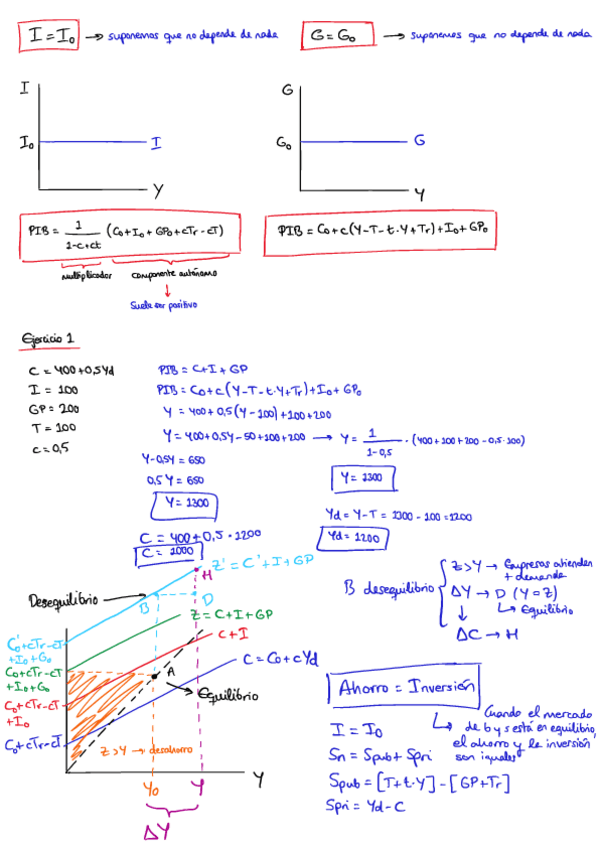 I = I₀ → suponemos que no depende de nada
G = G₀ → suponemos que no depende de nada
I
I₀
I
Y
G
G₀
G
Y
PIB = 1/(1-c+ct) (C₀+I₀+GP₀+cTr-cT)
multiplicador
componente autónomo
Suele ser positivo
PIB = C₀+c(Y-T-t·Y+Tr)+I₀+GP₀
Ejercicio 1
C = 400+0,5Yd
I = 100
GP = 200
T = 100
c = 0,5
PIB = C+I+GP
PIB = C₀+c(Y-T-t·Y+Tr)+I₀+GP₀
Y = 400+0,5(Y-100)+100+200
Y = 400+0,5Y-50+100+200 → Y = 1/(1-0,5) · (400+100+200-0,5·100)
Y-0,5Y = 650
0,5Y = 650
Y = 1300
Y = 1300
Yd = Y-T = 1300-100 = 1200
Yd = 1200
C = 400+0,5·1200
C = 1000
Z' = C'+I+GP
H
Desequilibrio
B
D
Z = C+I+GP
C+I
C = C₀+cYd
A
Equilibrio
C₀'+cTr-cT
+I₀+G₀
C₀+cTr-cT
+I₀+G₀
C₀+cTr-cT
+I₀
C₀+cTr-cT
Z>Y → desahorro
Y₀
Y
Y
ΔY
B desequilibrio
Z>Y → Empresas atienden
+ demanda
ΔY → D (Y=Z)
Equilibrio
ΔC → H
Ahorro = Inversión
Cuando el mercado
de b y s está en equilibrio,
el ahorro y la inversión
son iguales
I = I₀
Sn = Spub + Spri
Spub = [T+t·Y]-[GP+Tr]
Spri = Yd-C